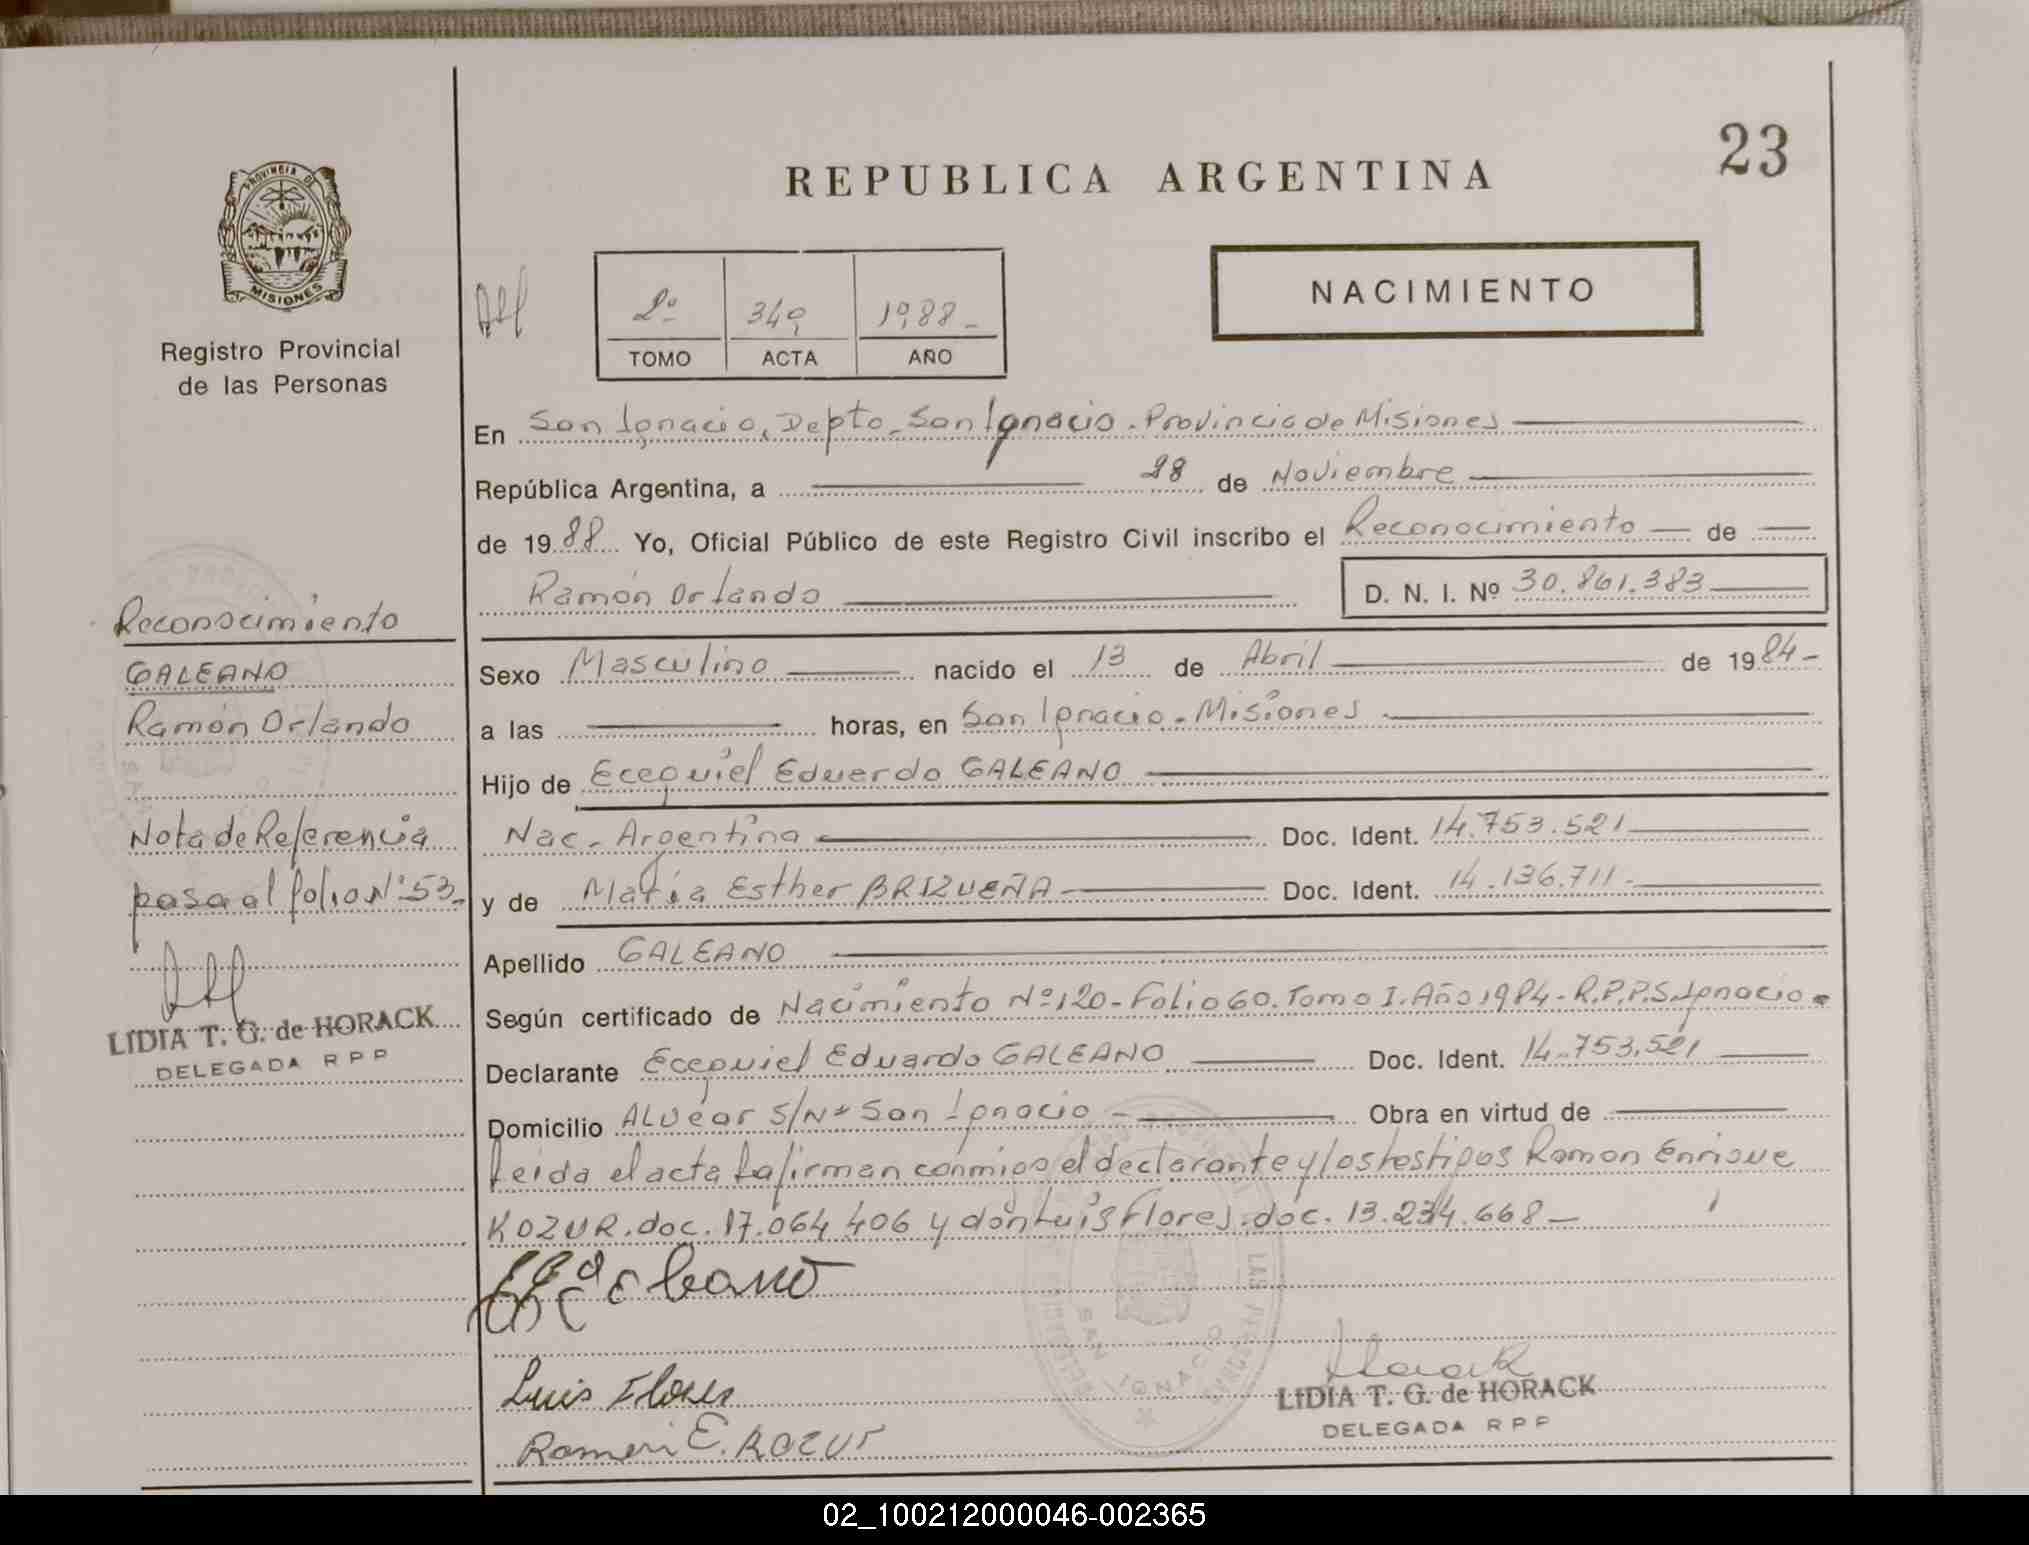 23
REPUBLICA ARGENTINA
PROVINCIA DE
MISIONES
Registro Provincial
de las Personas
2º 349 1988-
TOMO ACTA AÑO
NACIMIENTO
En San Ignacio, Depto. San Ignacio. Provincia de Misiones
República Argentina, a 28 de Noviembre
de 1988 Yo, Oficial Público de este Registro Civil inscribo el Reconocimiento de
Ramón Orlando D. N. I. Nº 30.861.383
Reconocimiento
GALEANO
Ramón Orlando
Nota de Referencia
pasa al folio Nº 53-
LIDIA T. G. de HORACK
DELEGADA R P P
Sexo Masculino nacido el 13 de Abril de 1984-
a las horas, en San Ignacio - Misiones
Hijo de Ecequiel Eduardo GALEANO
Nac. Argentina Doc. Ident. 14.753.521
y de María Esther BRIZUEÑA Doc. Ident. 14.136.711-
Apellido GALEANO
Según certificado de Nacimiento Nº 120 - Folio 60. Tomo I. Año 1984 - R.P.P.S. Ignacio -
Declarante Ecequiel Eduardo GALEANO Doc. Ident. 14.753.521
Domicilio ALvear S/Nº San Ignacio - Obra en virtud de
Leida el acta la firman conmigo el declarante y los testigos Ramon Enrique
KOZUR. doc. 17.064.406 y don Luis Flores. doc. 13.234.668-
Luis Flores
Ramon E. KOZUR
SAN IGNACIO
Horack
LIDIA T. G. de HORACK
DELEGADA R P P
02_100212000046-002365